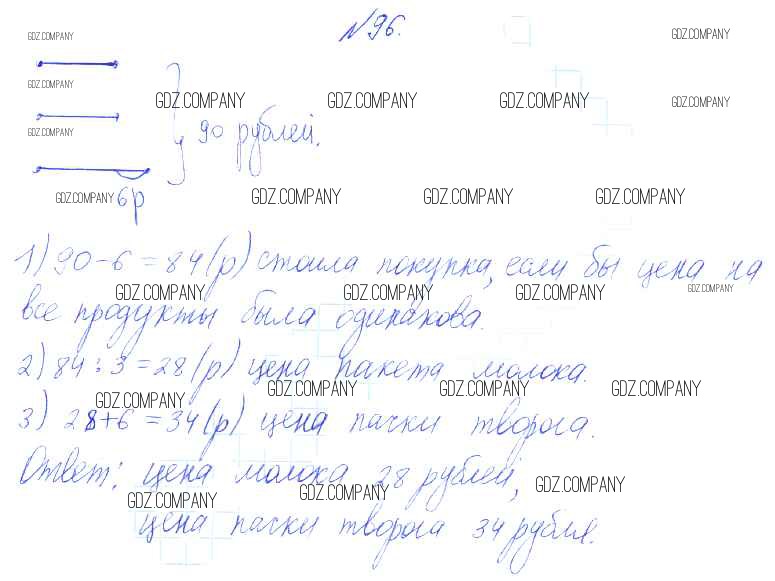 №96.
GDZ.COMPANY GDZ.COMPANY
GDZ.COMPANY
GDZ.COMPANY GDZ.COMPANY GDZ.COMPANY GDZ.COMPANY
GDZ.COMPANY
90 рублей.
GDZ.COMPANY 6р GDZ.COMPANY GDZ.COMPANY GDZ.COMPANY
1) 90-6=84(р) стоила покупка, если бы цена на
GDZ.COMPANY GDZ.COMPANY GDZ.COMPANY GDZ.COMPANY
все продукты была одинакова.
2) 84:3=28(р) цена пакета молока.
GDZ.COMPANY GDZ.COMPANY GDZ.COMPANY GDZ.COMPANY
3) 28+6=34(р) цена пачки творога.
Ответ: цена молока 28 рублей,
GDZ.COMPANY GDZ.COMPANY GDZ.COMPANY
цена пачки творога 34 рубля.